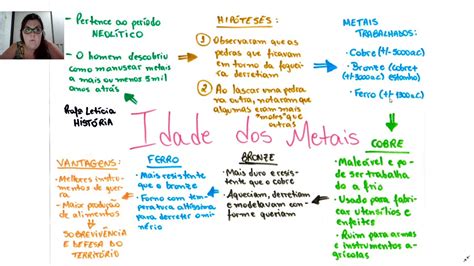 - Pertence ao período
NEOLÍTICO
- O homem descobriu
como manusear metais
a mais ou menos 5 mil
anos atrás
Profª Letícia
HISTÓRIA
HIPÓTESES:
1 Observaram que as
pedras que ficavam
em torno da foguei
ra derretiam
2 Ao lascar uma pedra
na outra, notaram que
algumas eram mais
"moles" que
outras
METAIS
TRABALHADOS:
• Cobre (+/- 5000 a.C)
• Bronze (cobre+
(+/-3000 a.C) estanho)
• Ferro (+/- 1300 a.C)
Idade dos Metais
COBRE
• Maleável e po-
de ser trabalha
do a frio
• Usado para fabri-
car utensílios e
enfeites
• Ruim para armas
e instrumentos a-
grícolas
BRONZE
• Mais duro e resis-
tente que o cobre
• Aqueciam, derretiam
e modelavam con-
forme queriam
FERRO
• Mais resistente
que o bronze
• Forno com tem-
peratura altíssima
para derreter o mi-
nério
VANTAGENS:
• Melhores instrumen-
tos de guer-
ra
• Maior produção
de alimentos
SOBREVIVÊNCIA
E DEFESA DO
TERRITÓRIO